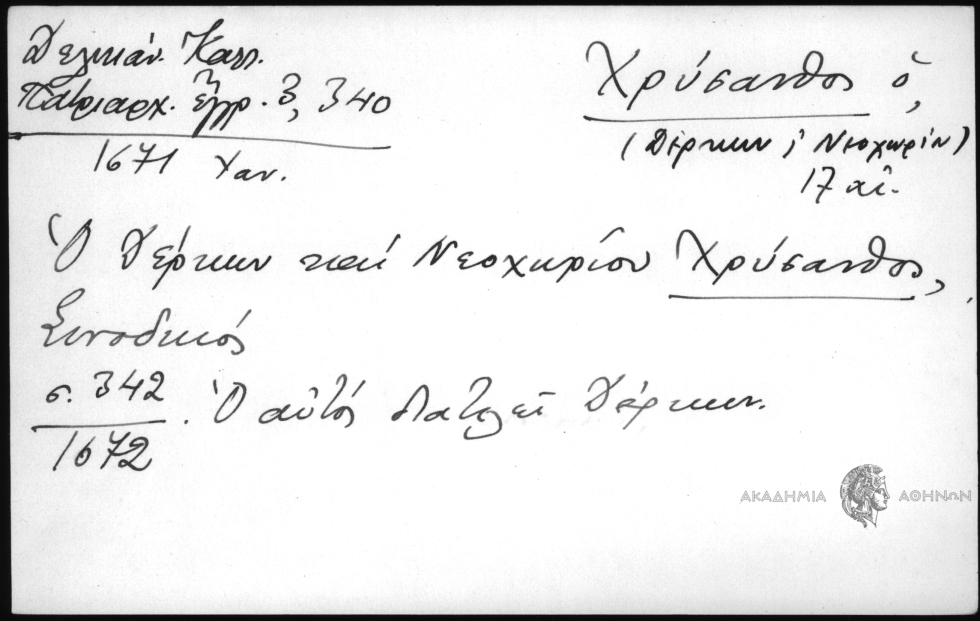 Δελικάν. Κατ.
Πατριαρχ. ἐγγρ. 3, 340
1671 Ἰαν.
Χρύσανθος ὁ,
(Δέρκων ἡ Νεοχωρίου)
17 αἰ.
Ὁ Δέρκων καί Νεοχωρίου Χρύσανθος,
Συνοδικός
σ. 342
1672
. Ὁ αὐτός Δέρκων.
ΑΚΑΔΗΜΙΑ ΑΘΗΝΩΝ